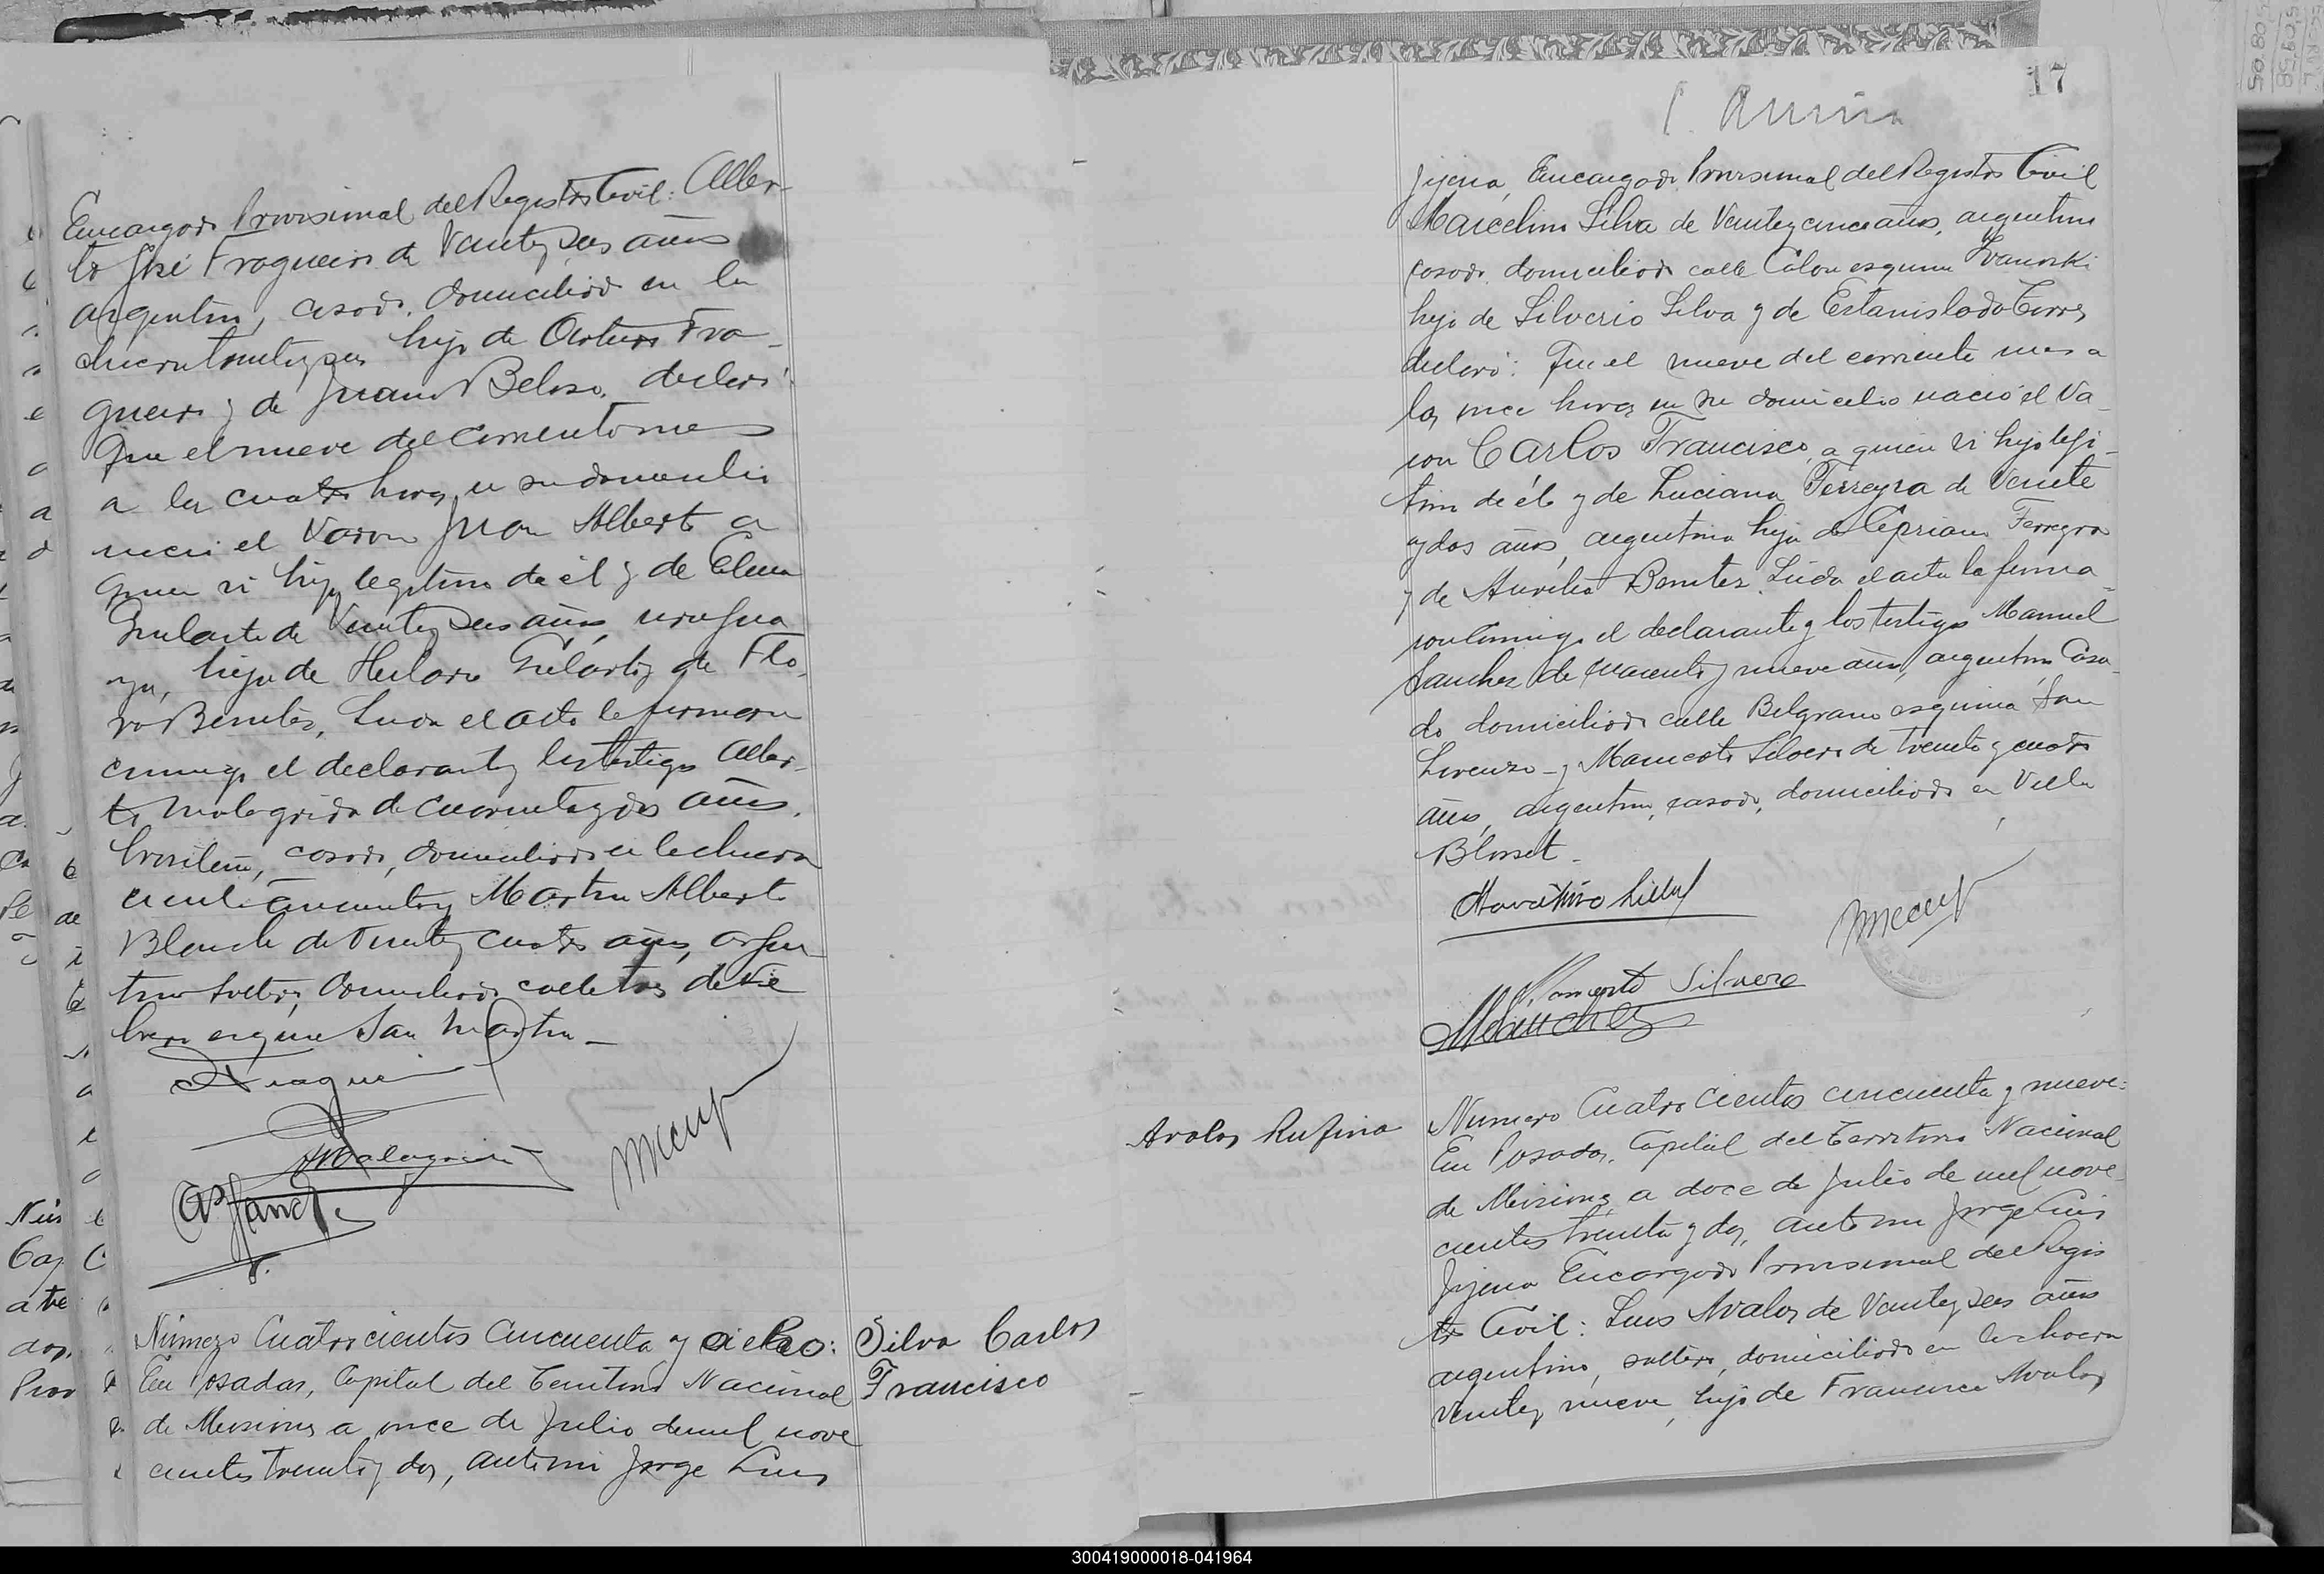 Encargado Provisional del Registro Civil: Alber-
to José Fragueiro de Veinte y seis años
argentino, casado, domiciliado en la
chacra treinta y seis hijo de Arturo Fra-
gueiro y de Juana Beloso, declaró:
Que el nueve del corriente mes
a las cuatro horas, en su domicilio
nació el Varon Juan Alberto a
quien vi hijo legítimo de él y de Elena
Gularte de Veinte y seis años, urugua
ya, hija de Hilario Gularte y de Flo-
ra Benites, Leida el acta la firmaron
conmigo el declarante y los testigos Alber-
to Malagrida de cuarenta y dos años,
brasilero, casado, domiciliado en la chacra
ciento cincuenta y Martin Alberto
Blanch de Veinte y cuatro años, argen-
tino soltero, domiciliado calle tres de Fe
brero esquina San Martin -
Malagrida
Número Cuatrocientos Cincuenta y ocho:
En Posadas, Capital del Territorio Nacional
de Misiones a once de Julio de mil nove
cientos treinta y dos, ante mi Jorge Luis
Silva Carlos
Francisco
17
Jijena, Encargado Provisional del Registro Civil
Marcelino Silva de Veinte y cinco años, argentino
casado, domiciliado calle Colon esquina Ivanoski
hijo de Silverio Silva y de Estanislada Torres,
declaró: Que el nueve del corriente mes a
las once horas en su domicilio nació el Va-
ron Carlos Francisco, a quien vi hijo legi-
timo de él y de Luciana Ferreyra de Veinte
y dos años, argentina hija de Cipriano Ferreyra
y de Aurelia Benites. Leida el acta la firma-
ron conmigo el declarante y los testigos Manuel
Sanchez de cuarenta y nueve años, argentino Casa-
do domiciliado calle Belgrano esquina San
Lorenzo - y Mamerto Silvero de treinta y cuatro
años, argentino, casado, domiciliado en Villa
Blosset -
Mamerto Silvero
MSanchez
Avalos Rufino
Numero Cuatrocientos cincuenta y nueve:
En Posadas, Capital del Territorio Nacional
de Misiones, a doce de Julio de mil nove
cientos treinta y dos, ante mi Jorge Luis
Jijena Encargado Provisional del Regis
tro Civil: Luis Avalos de Veinte y seis años
argentino, soltero, domiciliado en la chacra
Veinte y nueve, hijo de Francisca Avalos
300419000018-041964